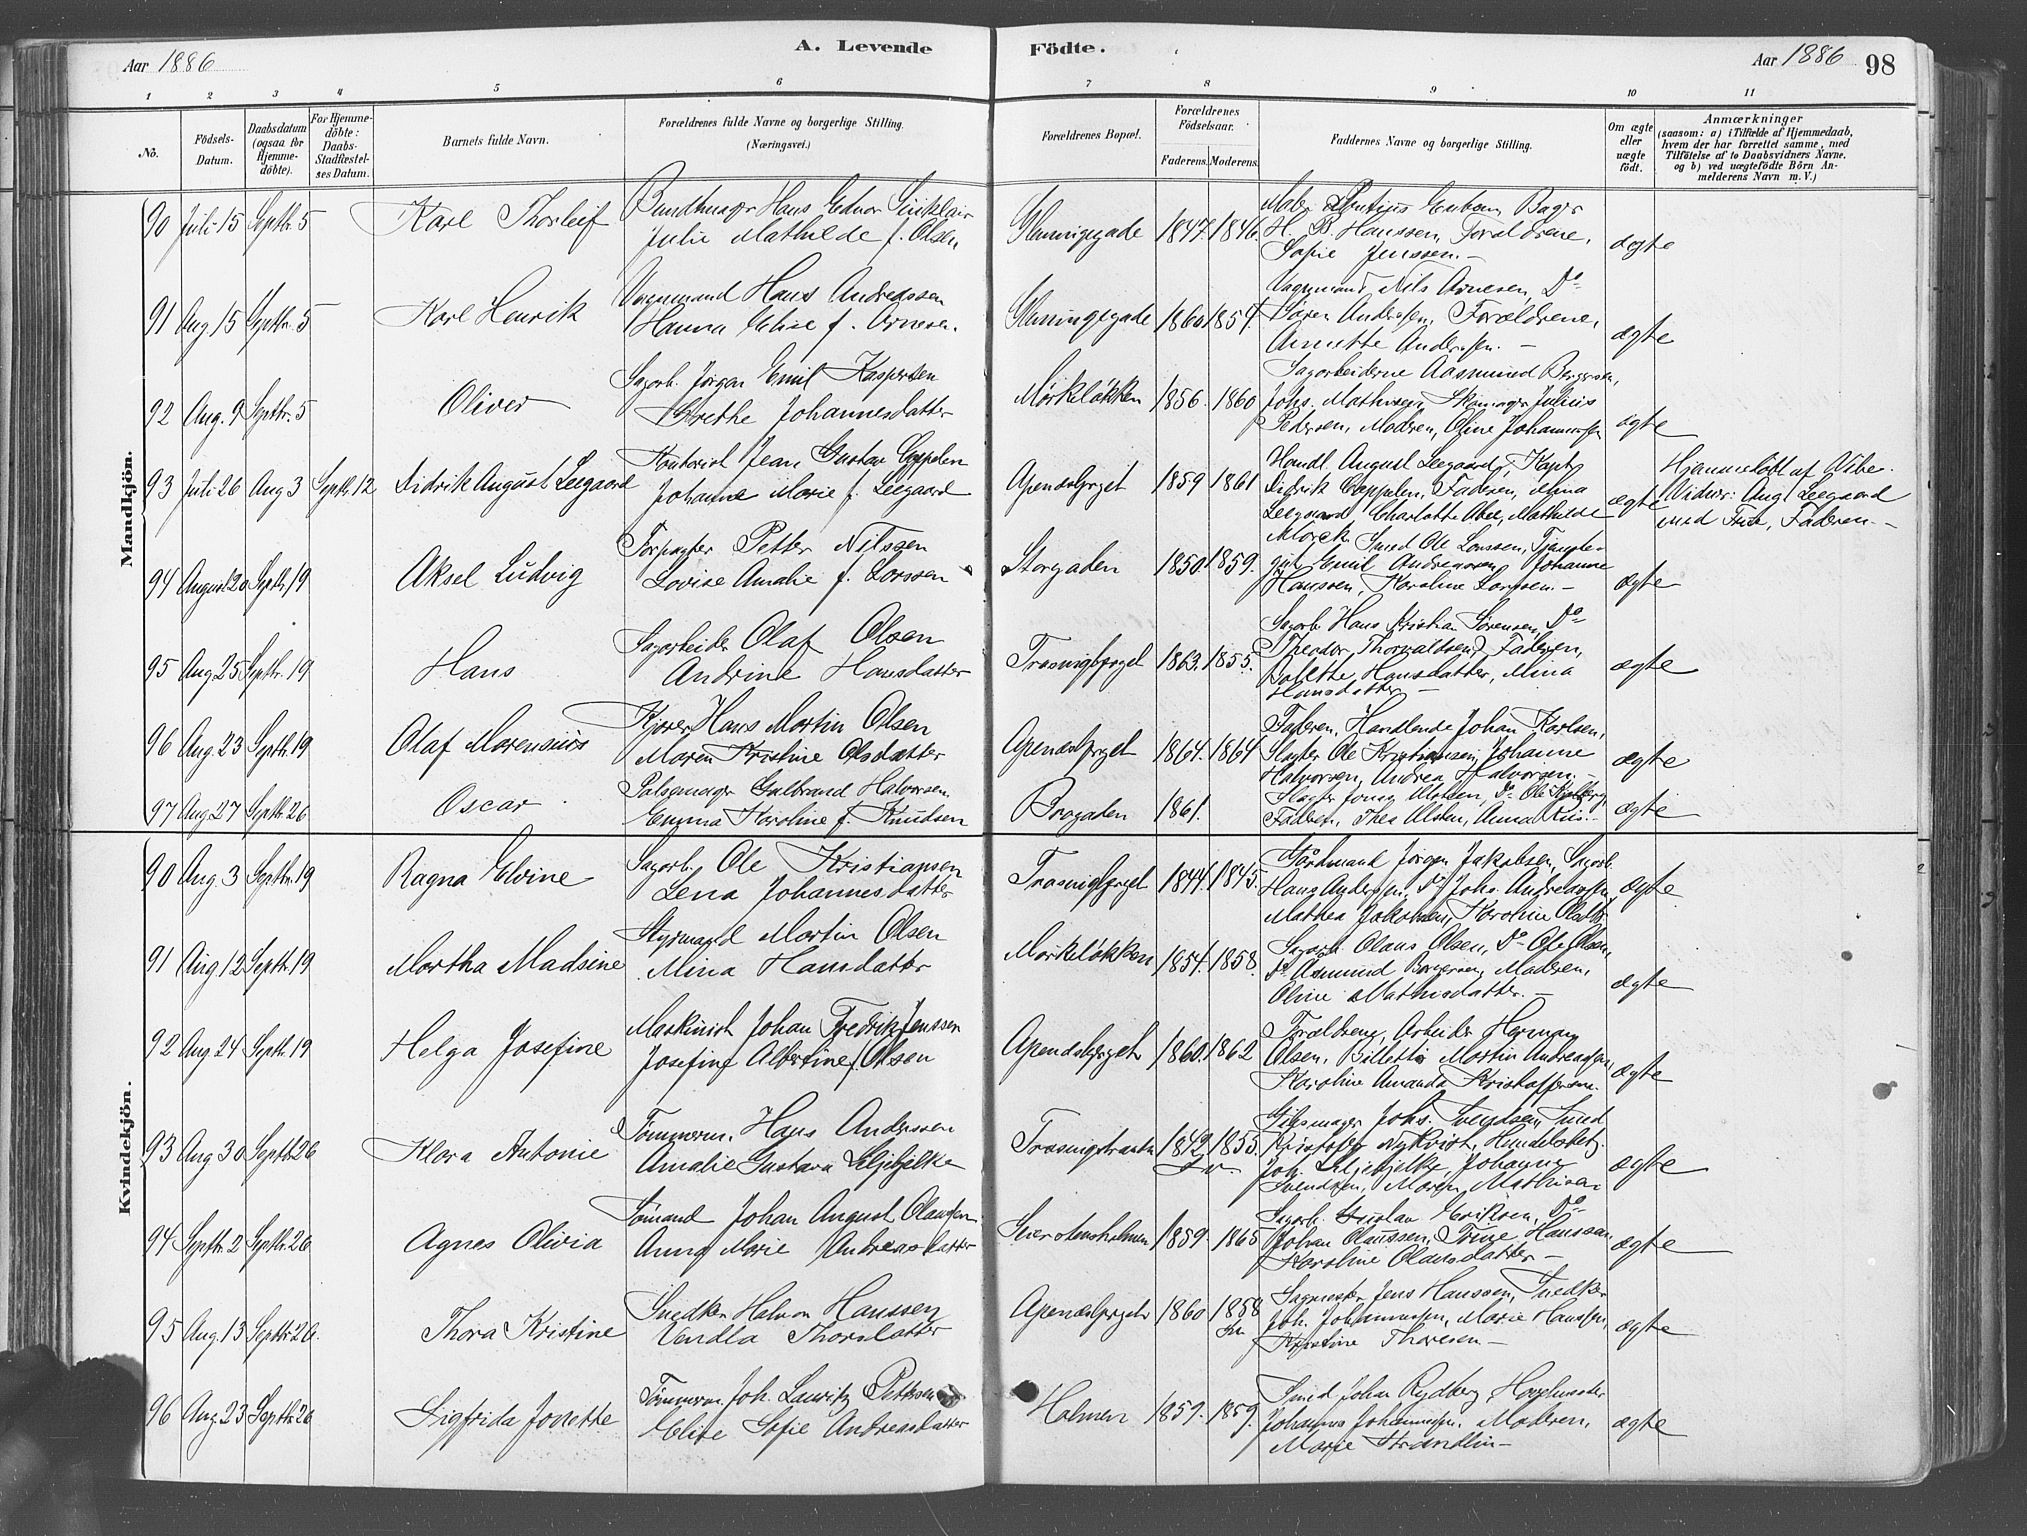 A. Levende Födte.
Aar 1886
Aar 1886 98
1 2 3 4 5 6 7 8 9 10 11
No.
Födsels-
Datum.
Daabsdatum
(ogsaa for
Hjemme-
döbte).
For Hjemme-
döbte:
Daabs-
Stadfæstel-
ses Datum.
Barnets fulde Navn.
Forældrenes fulde Navne og borgerlige Stilling.
(Næringsvei.)
Forældrenes Bopæl.
Forældrenes
Födselsaar.
Faderens. Moderens.
Faddernes Navne og borgerlige Stilling.
Om ægte
eller
uægte
födt.
Anmærkninger
(saasom: a) i Tilfælde af Hjemmedaab,
hvem der har forrettet samme, med
Tilföielse af to Daabsvidners Navne,
og b) ved uægtefödte Börn An-
melderens Navn m. V.)
Mandkjön.
90 Juli 15 Septbr. 5 Karl Thorleif
Julie Mathilde f. Olsen
Glemmegade 1847. 1846.
H. B. Hanssen, Forældrene,
Sofie Jenssen. –
ægte
91 Aug 15 Septbr. 5 Karl Henrik
Vognmand Hans Andreassen
Hanna Elise f. Arnesen.
Glemmegade 1860 1854.
Vognmand Nils Arnesen, Do
Sören Andersen, Forældrene,
Annette Andersen. –
ægte
92 Aug. 9 Septbr. 5 Oliver
Sagarb. Jörgen Emil Kaspersen
Grethe Johannesdatter
Mörkeløkken 1856. 1860
Sagarbeiderne Aasmund Borgersen,
Johs. Mathisen, Skomager Julius
Pedersen, Moderen, Oline Johannessen
ægte
93 Juli 26 Aug 3 Septbr. 12 Didrik August Leegaard
Kontorist Jean Gustav Cappelen
Johanne Marie f. Leegaard
Apenæsbrygt 1859 1861
Handl. August Leegaard, Kapt.
Didrik Cappelen, Faderen, Mina
Leegaard, Charlotte Abel, Mathilde
Morck
ægte
Hjemmedöbt af Vibe.
Vidner: Aug. Leegaard
med Frue, Faderen. –
94 August 20 Septbr. 19 Aksel Ludvig
Forpagter Petter Nilssen
Lovise Amalie f. Larssen
Storgaden 1850. 1859.
Smed Ole Larssen, Tjeneste-
gut Emil Andreassen, Johanne
Hanssen, Karoline Larssen. –
ægte
95 Aug 25 Septbr. 19 Hans
Sagarbeider Olaf Olsen
Andrine Hansdatter
1863. 1855.
Sagarb. Hans Kristian Sörensen, Do
Theodor Thorvaldsen, Faderen,
Bolette Hansdatter, Mina
Hansdatter –
ægte
96 Aug. 23 Septbr. 19 Olaf Marensius
Kjörer Hans Martin Olsen
Maren Kristine Olsdatter
Apenæsbrygt 1864. 1864
Faderen, Handlende Johan Karlsen,
Slagter Ole Kristiansen, Johanne
Halvorsen, Andrea Halvorsen. –
ægte
97 Aug 27 Septbr. 26 Oscar
Pölsemager Gulbrand Halvorsen
Emma Karoline f. Knudsen
Brogaden 1861.
Faderen, Thea Olsen, Anna
ægte
Kvindekjön.
90 Aug 3 Septbr. 19 Ragna Elvine
Sagarb. Ole Kristiansen
Lena Johannesdatter
1844. 1845.
Gårdmand Jörgen Jakobsen, Sagarb.
Hans Andersen, Do Johs. Andreassen,
Mathea Jakobsen, Karoline
ægte
91 Aug 12 Septbr. 19 Martha Madsine
Styrmand Martin Olsen
Mina Hansdatter
Mörkeløkken 1854. 1858.
Sagarb. Olaus Olsen, Do Ole Olsen,
Do Aasmund Borgersen, Moderen,
Oline Mathisdatter. –
ægte
92 Aug 24 Septbr. 19 Helga Josefine
Maskinist Johan Fredrik Jenssen
Josefine Albertine f. Olsen
Apenæsbrygt 1860. 1862
Forældrene, Arbeider Herman
Olsen, Martin Andreassen,
Karoline Amanda Kristoffersen.
ægte
93 Aug 30 Septbr. 26 Klara Antonie
Tömmerm. Hans Anderssen
Amalie Gustava Liljebjelke
1842. 1855.
Gibsmager Johs. Svendsen, Smed
Kristofer Nykvist,
Joh. Liljebjelke, Johanne
Svendsen, Maren Mathisen
ægte
94 Septbr. 2 Septbr. 26 Agnes Olivia
Sömand Johan August Olaussen
Anna Marie Andreasdatter
1859. 1865
Sagarb. Gustav Eriksen, Do
Johan Olaussen, Trine Hanssen
Karoline Olausdatter –
ægte
95 Aug. 13 Septbr. 26 Thora Kristine
Snedker Halvor Hanssen
Vendla Thorsdatter
Apenæsbrygt 1860 1858
Sagmester Jens Hanssen, Snedker
Joh. Johannessen, Marie Hanssen,
Kristine Thoresen –
ægte
96 Aug 23 Septbr. 26 Sigfrida Jonette
Tömmerm. Joh. Lauritz Pettersen
Elise Sofie Andreasdatter
Holmen 1859. 1859.
Smed Johan Rydberg,
Johannes Johannessen, Moderen,
Marie Strandlin –
ægte